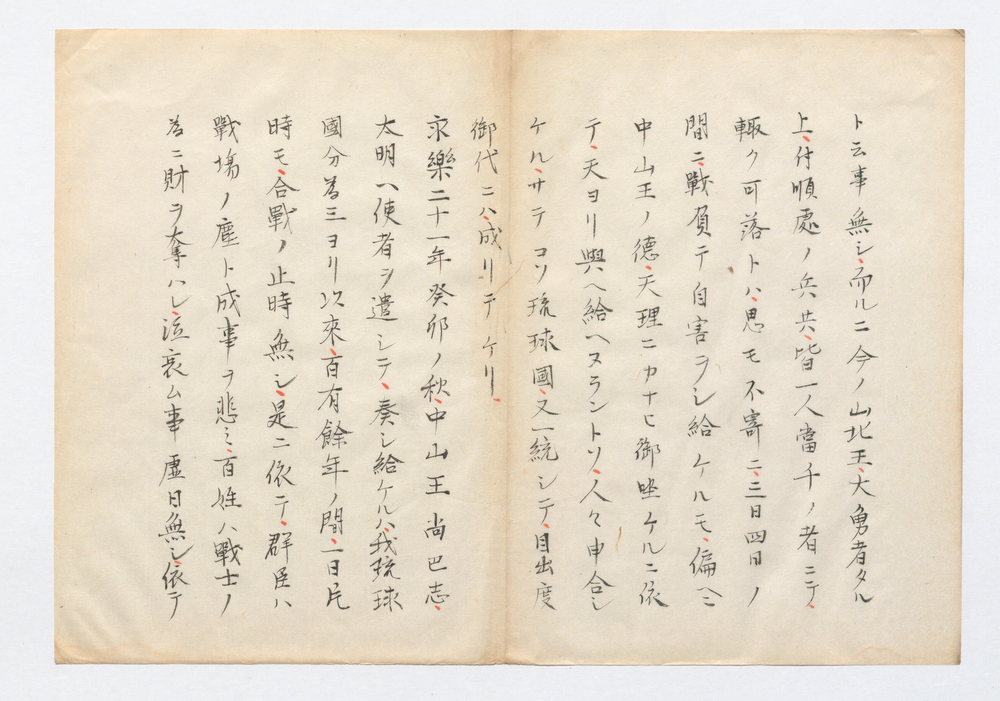 ト云事無シ、而ルニ今ノ山北王、大勇者タル
上、付順處ノ兵共、皆一人當千ノ者ニテ、
輙ク可落トハ、思モ不寄ニ、三日四日ノ
間ニ、戰負テ自害ヲシ給ケルモ、偏ヘニ
中山王ノ德、天理ニカナヒ御坐ケルニ依
テ、天ヨリ與ヘ給ヘヌラントソ、人々申合シ
ケル、サテコソ琉球國、又一統シテ、目出度
御代ニハ、成リテケリ、
永樂二十一年癸卯ノ秋、中山王尚巴志、
大明ヘ使者ヲ遣シテ、奏シ給ケルハ、我琉球
國分為三ヨリ以來、百有餘年ノ間、一日片
時モ、合戰ノ止時無シ、是ニ依テ、群臣ハ
戰塲ノ塵ト成事ヲ悲ミ、百姓ハ戰士ノ
為ニ財ヲ奪ハレ、泣哀ム事虚日無シ、依テ